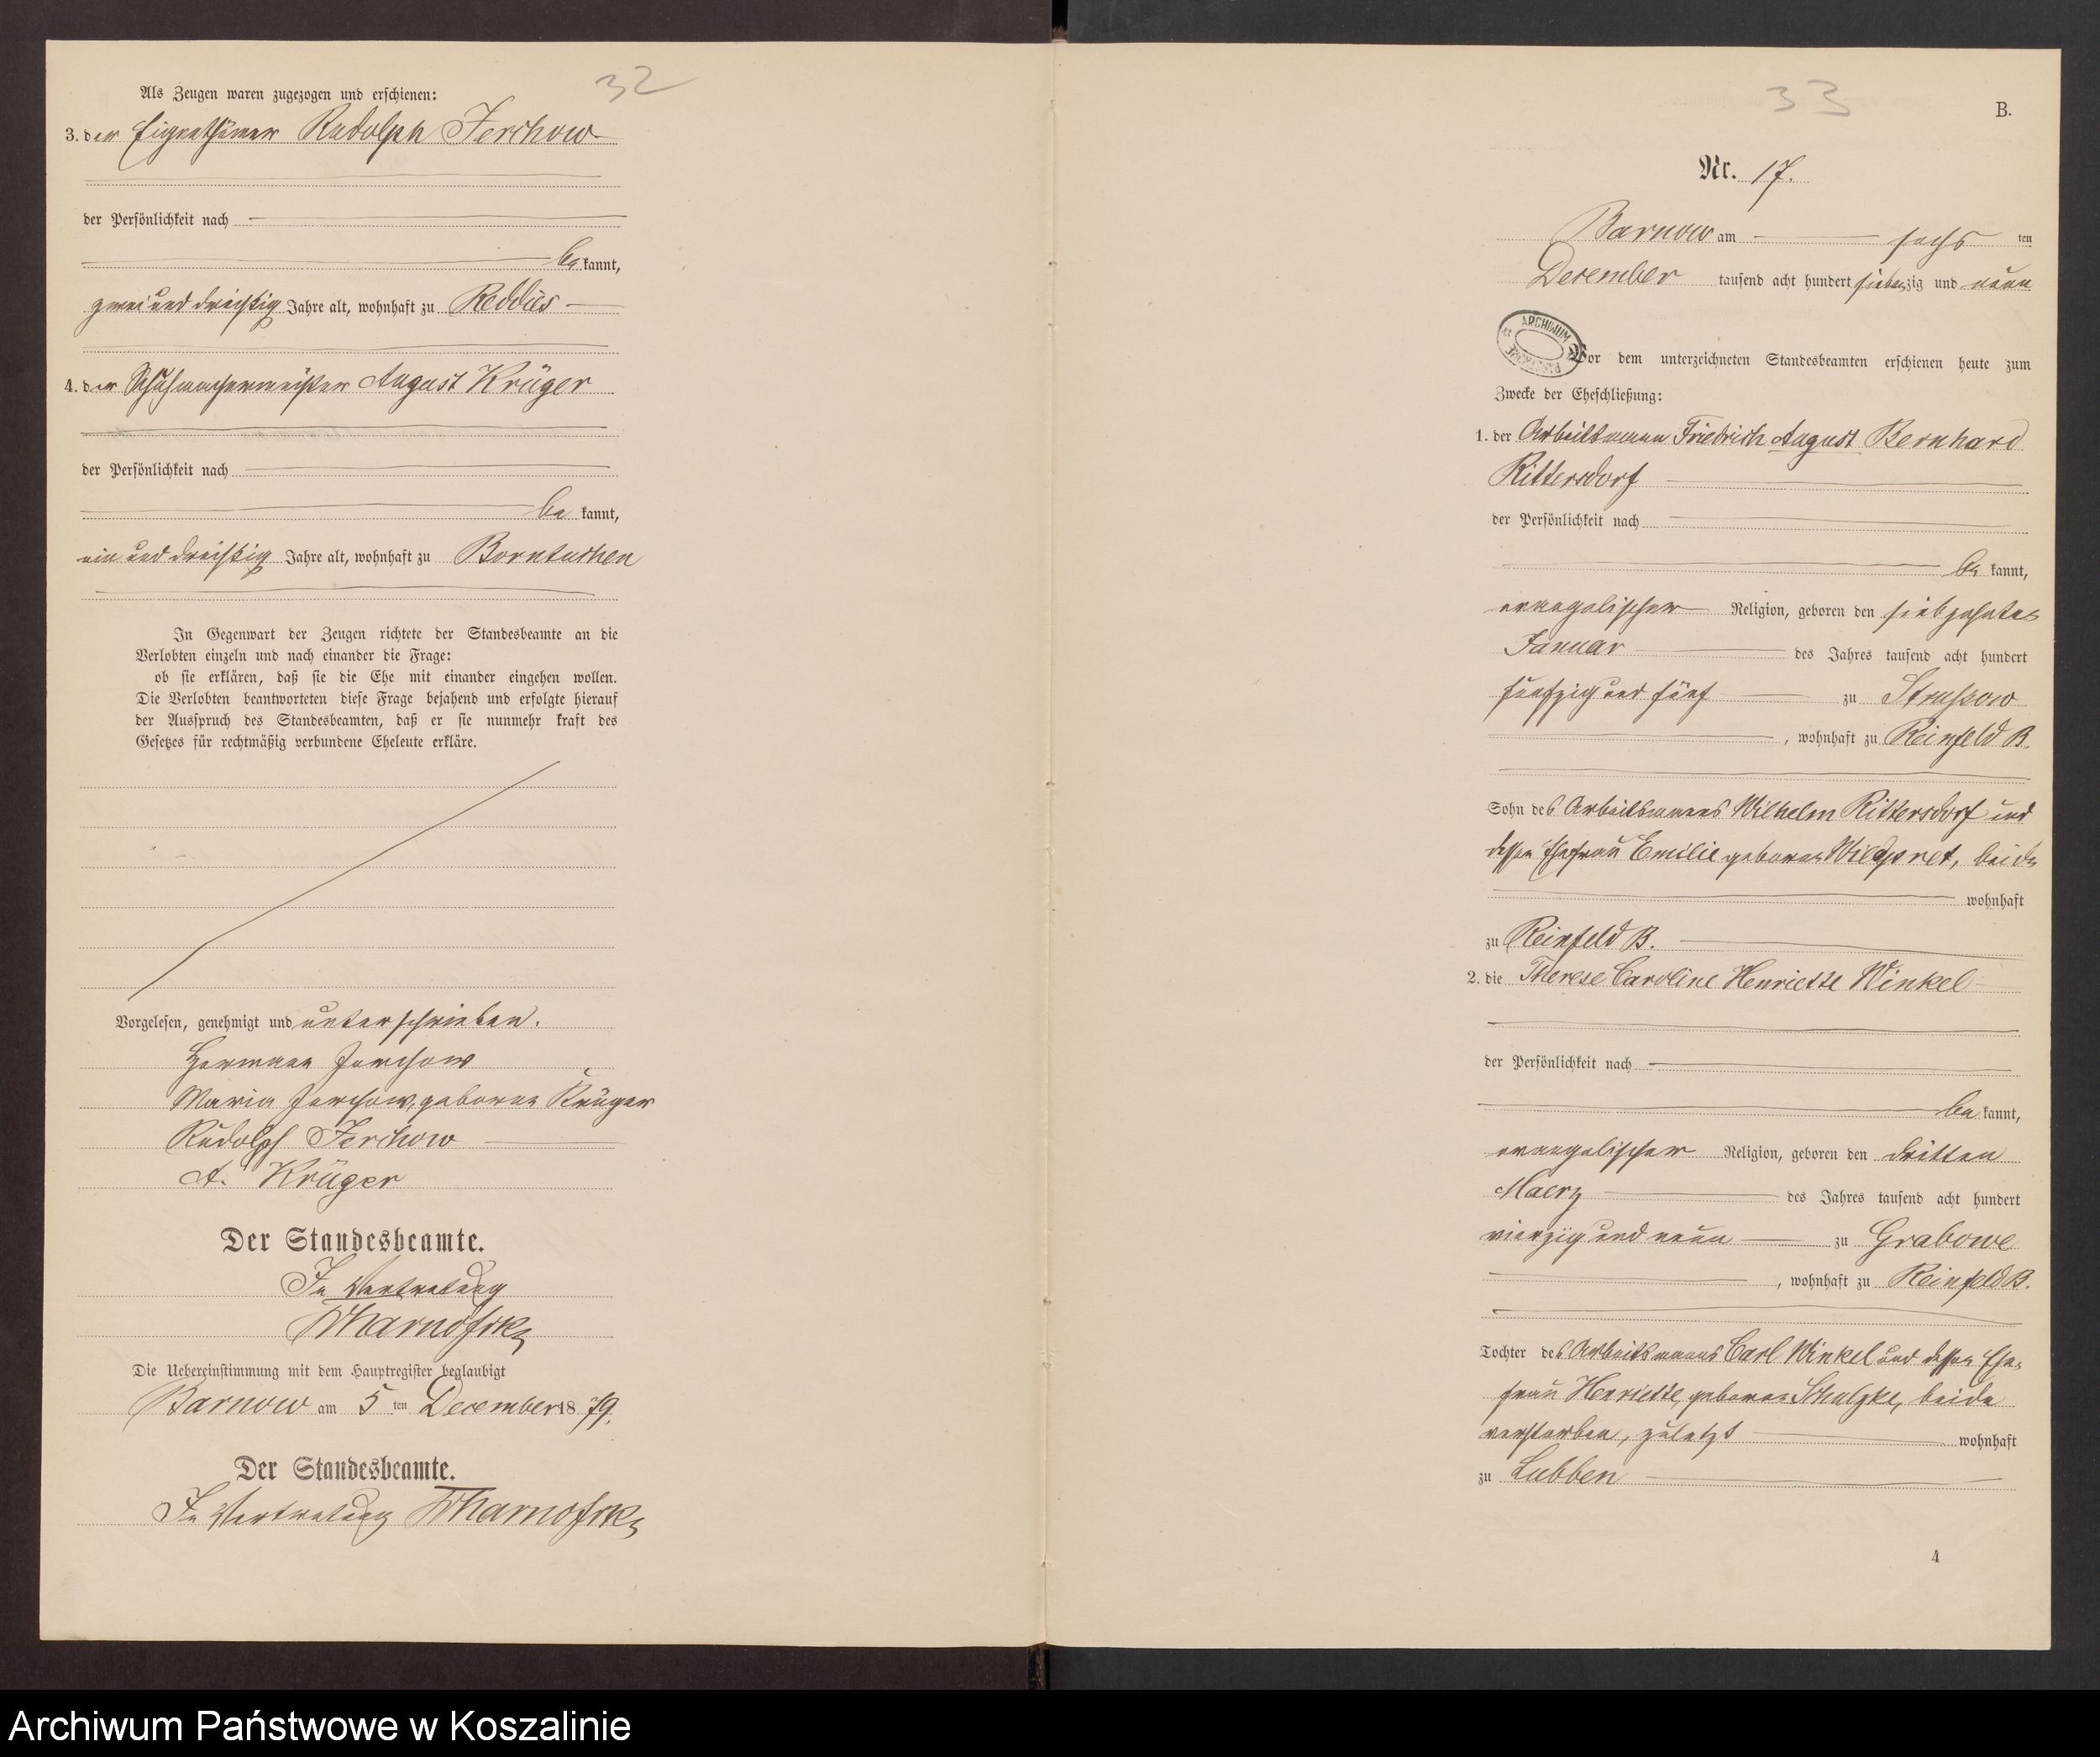 32
Als Zeugen waren zugezogen und erschienen:
3. der Eigenthümer Rudolph Jerchow
der Persönlichkeit nach
be kannt,
zwei und dreißig Jahre alt, wohnhaft zu Reddies
4. der Schuhmachermeister August Krüger
der Persönlichkeit nach
be kannt,
ein und dreißig Jahre alt, wohnhaft zu Borntuchen
In Gegenwart der Zeugen richtete der Standesbeamte an die
Verlobten einzeln und nach einander die Frage:
ob sie erklären, daß sie die Ehe mit einander eingehen wollen.
Die Verlobten beantworteten diese Frage bejahend und erfolgte hierauf
der Ausspruch des Standesbeamten, daß er sie nunmehr kraft des
Gesetzes für rechtmäßig verbundene Eheleute erkläre.
Vorgelesen, genehmigt und unterschrieben.
Hermann Jerchow
Maria Jerchow, geborne Krüger
Rudolph Jerchow
A. Krüger
Der Standesbeamte.
In Vertretung
Die Uebereinstimmung mit dem Hauptregister beglaubigt
Barnow am 5 ten December 18 79.
Der Standesbeamte.
In Vertretung
33
B.
Nr. 17.
Barnow am sechs ten
December tausend acht hundert siebenzig und neun
ARCHIWUM
Vor dem unterzeichneten Standesbeamten erschienen heute zum
Zwecke der Eheschließung:
1. der Arbeitsmann Friedrich August Bernhard
Rittersdorf
der Persönlichkeit nach
be kannt,
evangelischer Religion, geboren den siebzehnten
Januar des Jahres tausend acht hundert
fünfzig und fünf zu
, wohnhaft zu Reinfeld B.
Sohn des Arbeitsmanns Wilhelm Rittersdorf und
dessen Ehefrau Emilie geborne, beide
wohnhaft
zu Reinfeld B.
2. die Therese Caroline Henriette Winkel
der Persönlichkeit nach
be kannt,
evangelischer Religion, geboren den dritten
Maerz des Jahres tausend acht hundert
vierzig und neun zu Grabowe
, wohnhaft zu Reinfeld B.
Tochter des Arbeitsmanns Carl Winkel und dessen Ehe-
frau Henriette, geborne Schulzke, beide
verstorben, zuletzt wohnhaft
zu Lubben
4
Archiwum Państwowe w Koszalinie